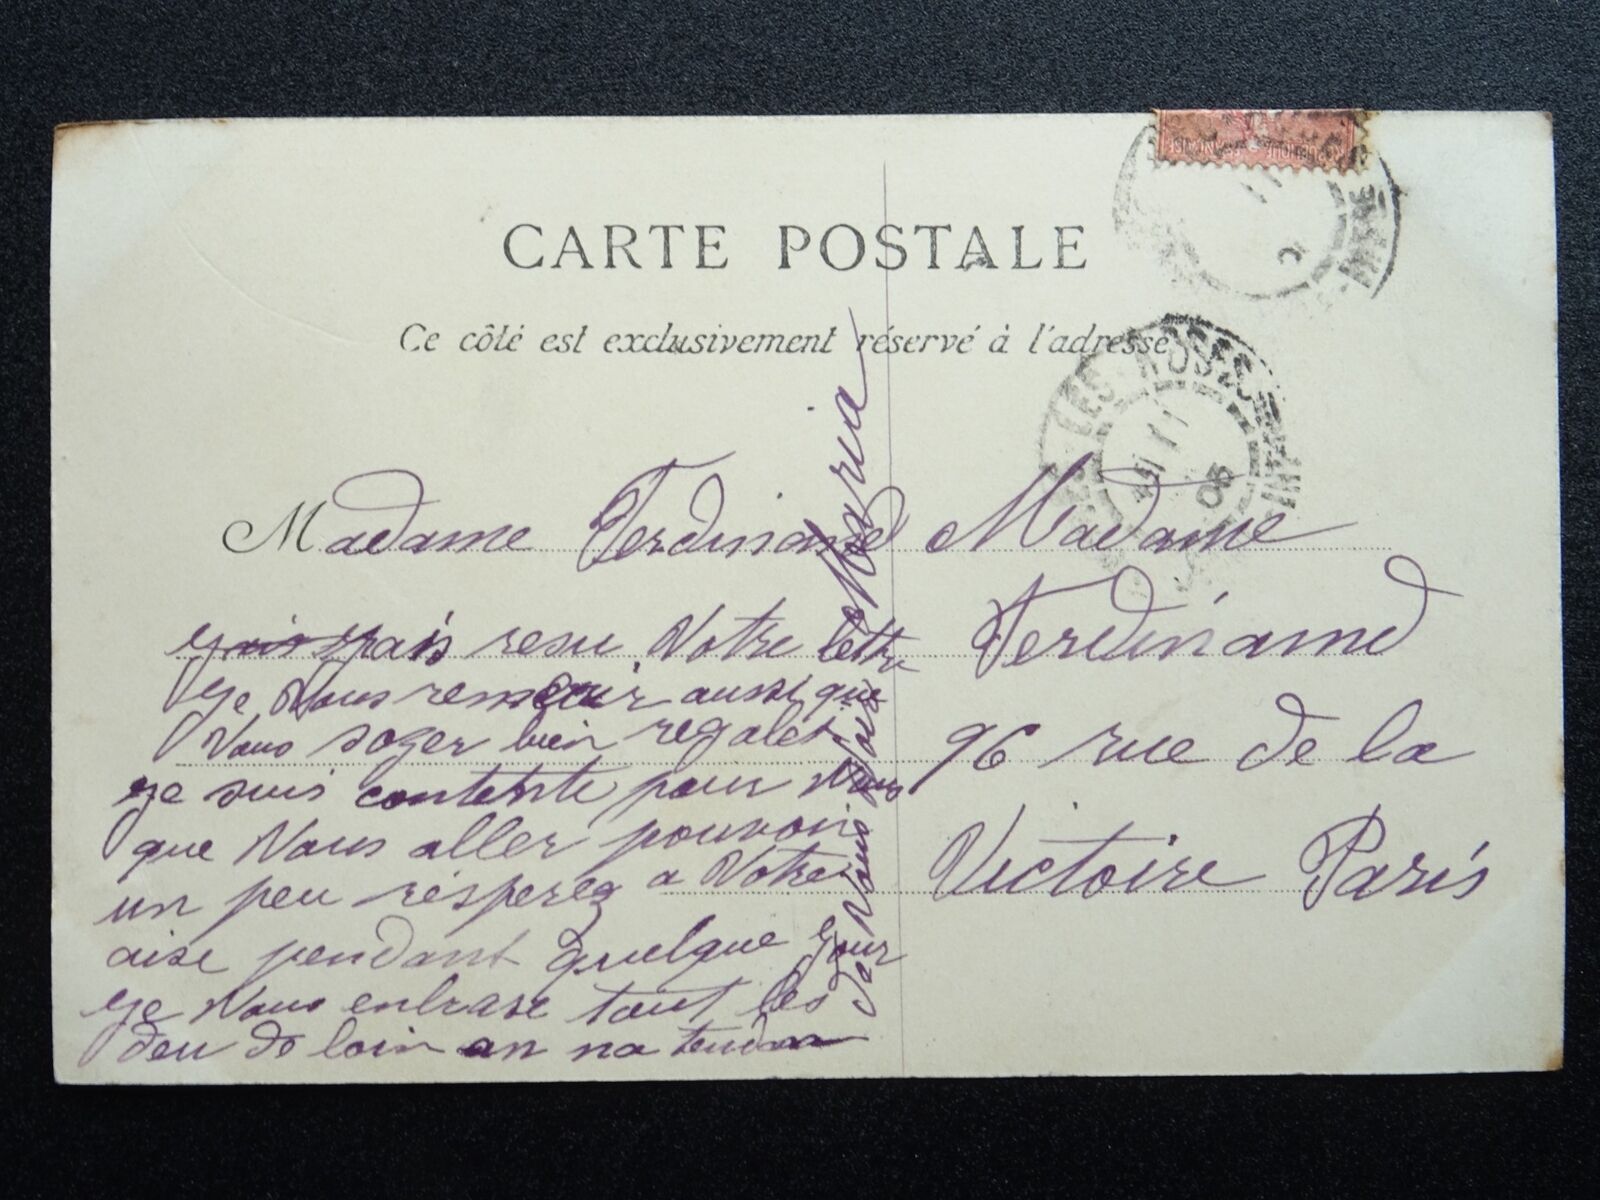 CARTE POSTALE
Ce côté est exclusivement réservé à l'adresse
Madame Ferdinand
j'ais resu Votre lettre
je Vous remercier aussi que
Vous soyer bien regaler
je suis contente pour Vous
que Vous aller pouvoir
un peu résperez a Votre
aise pendant quelque jour
je Vous enbrase tout les
deu de loin an na tendan
de Vous Voir
Maria
Madame
Ferdinand
96 rue de la
Victoire Paris
LES ROSES
05